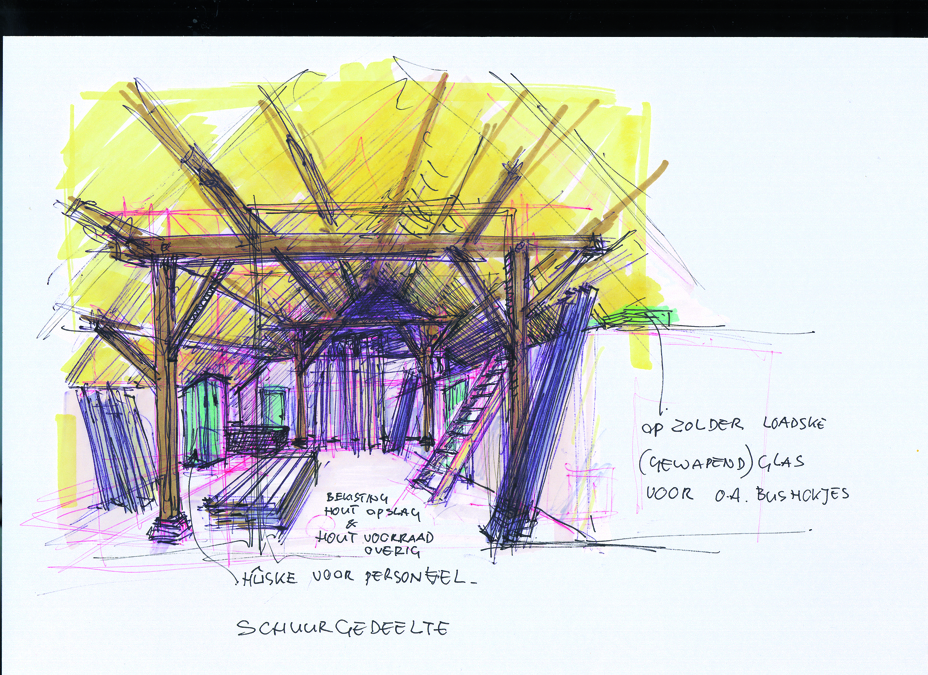 OP ZOLDER LOADSKE
(GEWAPEND) GLAS
VOOR O.A. BIJSHOKJES
BELASTING
HOUT OPSLAG
&
HOUT VOORRAAD
OVERIG
HÛSKE VOOR PERSONEEL
SCHUURGEDEELTE